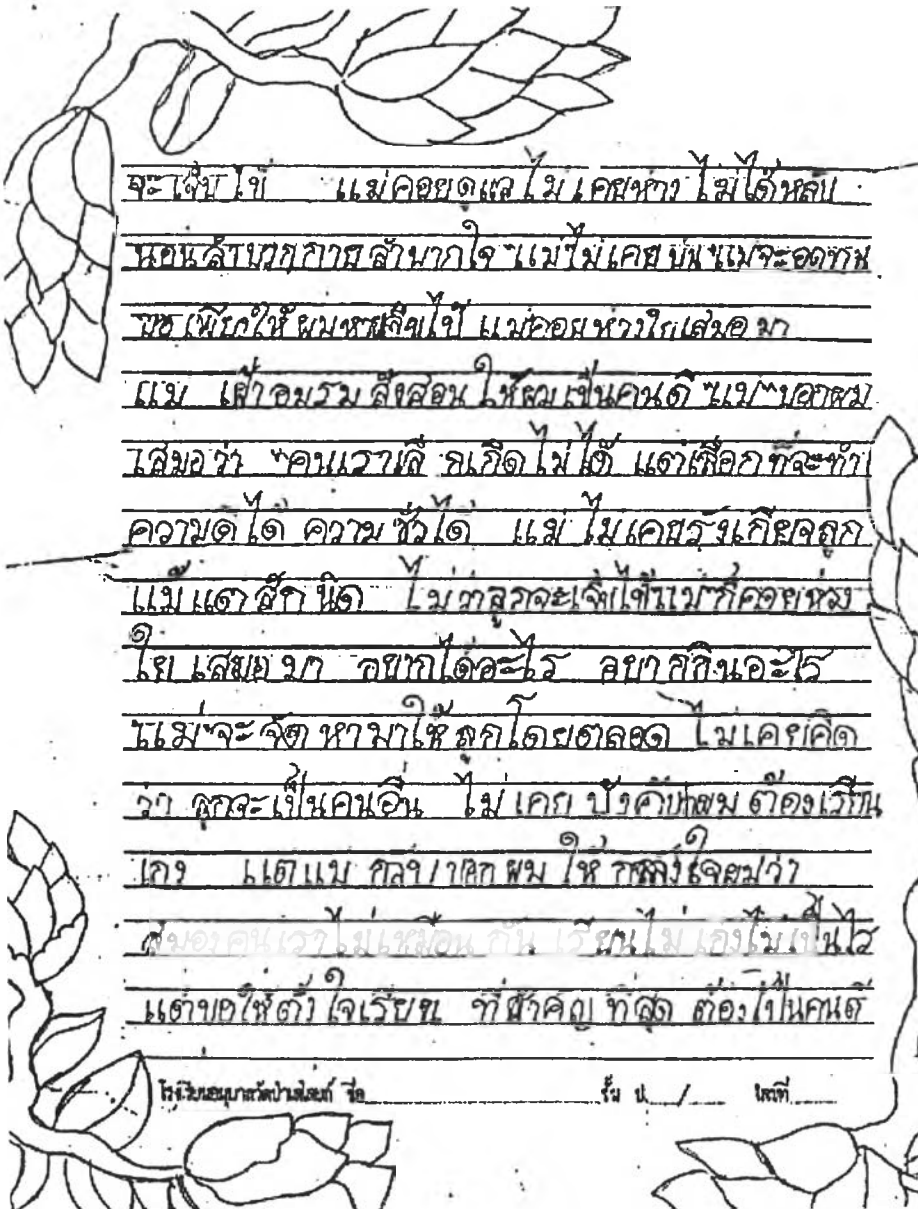 จะเจ็บไข้ แม่คอยดูแลไม่เคยห่าง ไม่ได้หลับ
นอนลำบากกายลำบากใจ "แม่ไม่เคยบ่น "แม่จะอดทน
ขอเพียงให้ผมหายเจ็บไข้ แม่คอยห่วงใยเสมอมา
แม่ เฝ้าอบรม สั่งสอน ให้ผมเป็นคนดี "แม่" บอกผม
เสมอว่า "คนเราเลือกเกิดไม่ได้ แต่เลือกที่จะทำ
ความดีได้ ความชั่วได้ แม่ ไม่เคยรังเกียจลูก
แม้แต่สักนิด ไม่ว่าลูกจะเจ็บไข้แม่ก็คอยห่วง
ใยเสมอมา อยากได้อะไร อยากกินอะไร
"แม่"จะจัดหามาให้ลูกโดยตลอด ไม่เคยคิด
ว่า ลูกจะเป็นคนอื่น ไม่เคยบังคับผมต้องเรียน
เก่ง แต่แม่ ผมให้ ว่า
สมองคนเราไม่เหมือนกัน เรียนไม่เก่งไม่เป็นไร
แต่ขอให้ตั้งใจเรียน ที่สำคัญที่สุด ต้องเป็นคนดี
โรงเรียนอนุบาลวัดป่าเลไลยก์ ชื่อ ชั้น ป. / เลขที่